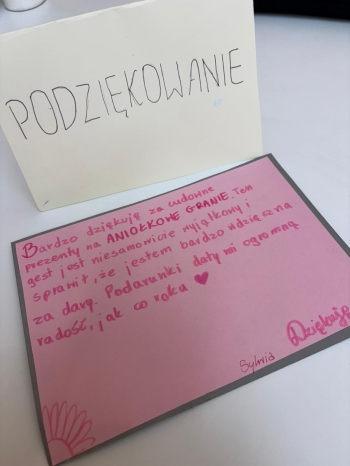 PODZIĘKOWANIE
Bardzo dziękuję za cudowne
prezenty na ANIOŁKOWE GRANIE. Ten
gest jest niesamowicie wyjątkowy i
sprawił, że jestem bardzo wdzięczna
za dary. Podarunki dały mi ogromną
radość, jak co roku ♥
Dziękuję
Sylwia